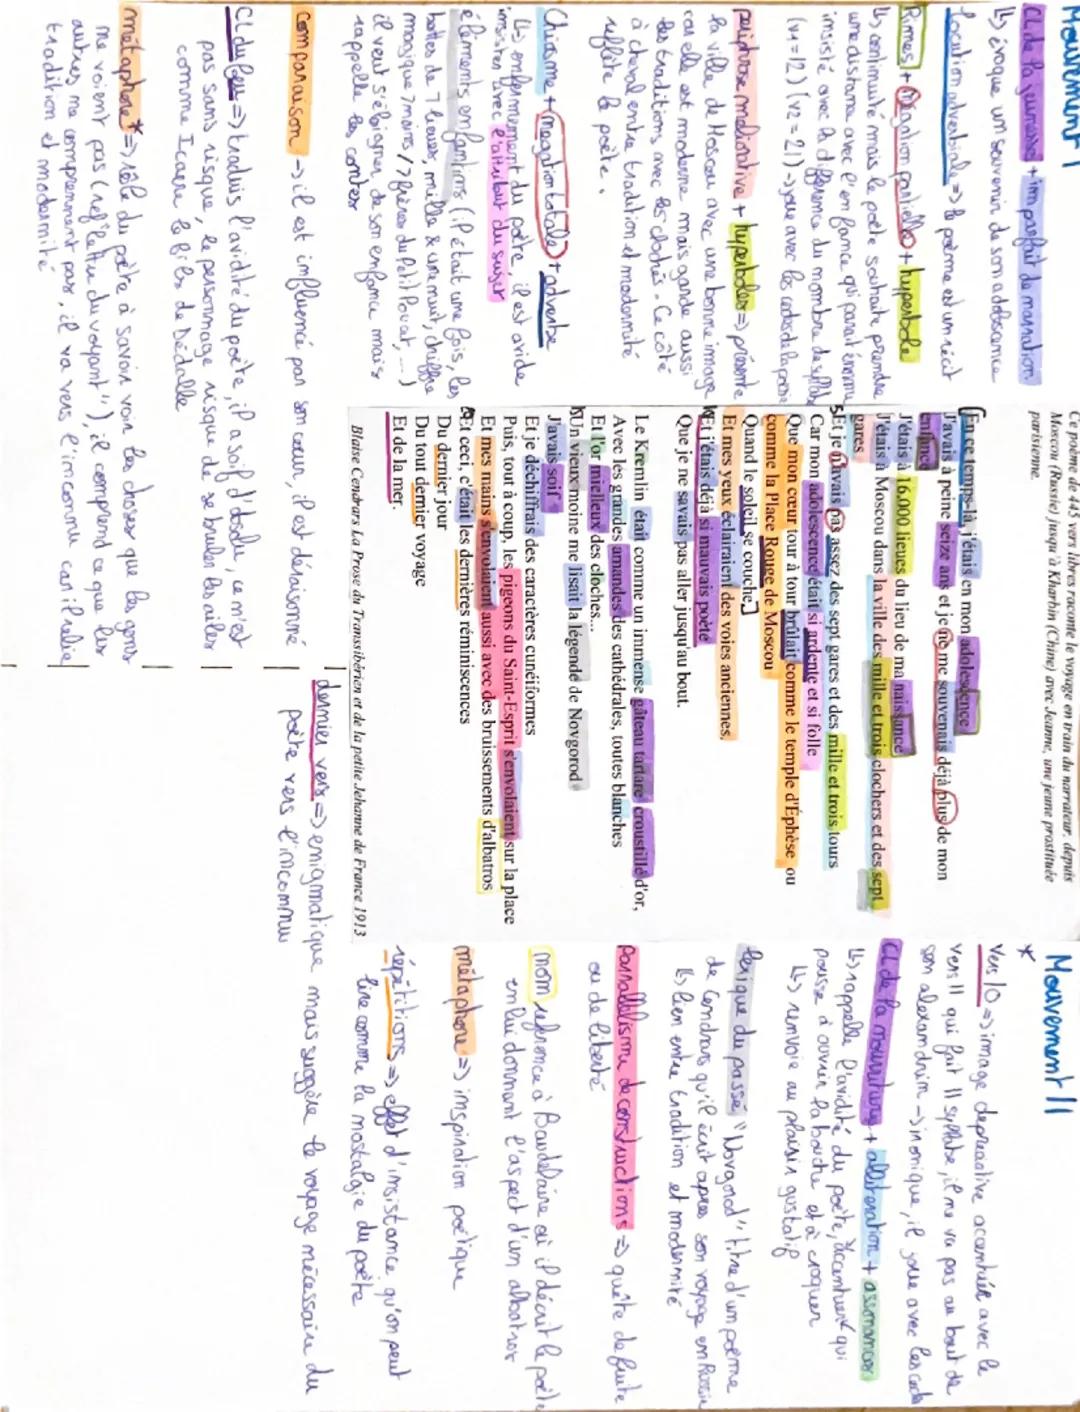 Mouvement I
CL de la jeunesse + imparfait de narration
↳ évoque un souvenir de son adolescence
Locution adverbiale => le poème est un récit
Rimes + négation partielle + hyperbole
↳ continuité mais le poète souhaite prendre
une distance avec l'enfance qui parait énorme
insisté avec la différence du nombre de syllabe
(v1 = 12) (v2 = 21) -> joue avec les codes de la poésie
périphrase méliorative + hyperboles => présente
la ville de Moscou avec une bonne image
car elle est moderne mais garde aussi
des traditions avec les clochés. Ce côté
à cheval entre tradition et modernité
reflète le poète.
Chiasme + négation totale + adverbe
↳ enfermement du poète, il est avide
insisten avec l'attribut du sujet
éléments enfantins (il était une fois, les
bottes de 7 lieues, mille & une nuit, chiffre
magique 7 nains / 7 frères du petit Poucet, ...)
il veut s'éloigner de son enfance mais
rappelle les contes
Comparaison -> il est influencé par son cœur, il est déraisonné
CL du feu => traduis l'avidité du poète, il a soif d'absolu, ce n'est
pas sans risque, le personnage risque de se bruler les ailes
comme Icare le fils de Dédalle
métaphore * => rôle du poète à savoir voir les choses que les gens
ne voient pas (ref "lettre du voyant"), il comprend ce que les
autres ne comprennent pas, il va vers l'inconnu car il relie
tradition et modernité
Ce poème de 445 vers libres raconte le voyage en train du narrateur, depuis
Moscou (Russie) jusqu'à Kharbin (Chine) avec Jeanne, une jeune prostituée
parisienne.
[En ce temps-là, j'étais en mon adolescence
J'avais à peine seize ans et je ne me souvenais déjà plus de mon
enfance
J'étais à 16.000 lieues du lieu de ma naissance
J'étais à Moscou dans la ville des mille et trois clochers et des sept
gares
5 Et je n'avais pas assez des sept gares et des mille et trois tours
Car mon adolescence était si ardente et si folle
Que mon cœur tour à tour brûlait comme le temple d'Ephèse ou
comme la Place Rouge de Moscou
Quand le soleil se couche.]
Et mes yeux éclairaient des voies anciennes.
10 Et j'étais déjà si mauvais poète
Que je ne savais pas aller jusqu'au bout.
Le Kremlin était comme un immense gâteau tartare croustillé d'or,
Avec les grandes amandes des cathédrales, toutes blanches
Et l'or mielleux des cloches...
15 Un vieux moine me lisait la légende de Novgorod
J'avais soif
Et je déchiffrais des caractères cunéiformes
Puis, tout à coup, les pigeons du Saint-Esprit s'envolaient sur la place
Et mes mains s'envolaient aussi avec des bruissements d'albatros
20 Et ceci, c'était les dernières réminiscences
Du dernier jour
Du tout dernier voyage
Et de la mer.
Blaise Cendrars La Prose du Transsibérien et de la petite Jehanne de France 1913
dernier vers => enigmatique mais suggère le voyage nécessaire du
poète vers l'inconnu
Mouvement II
*
Vers 10 => image depreciative accentuée avec le
vers 11 qui fait 11 syllabe, il ne va pas au bout de
son alexandrin -> ironique, il joue avec les codes
CL de la nourriture + allitération + assonances
↳ rappelle l'avidité du poète, accentuer qui
pousse à ouvrir la bouche et à croquer
↳ renvoie au plaisir gustatif
lexique du passé "Novgorod" titre d'un poème
de Cendrars qu'il écrit après son voyage en Russie
↳ lien entre tradition et modernité
Parrallélisme de constructions => quête de fuite
ou de liberté
nom reférence à Baudelaire où il décrit le poète
en lui donnant l'aspect d'un albatros
métaphore => inspiration poétique
répétitions => effet d'insistance qu'on peut
lire comme la nostalgie du poète